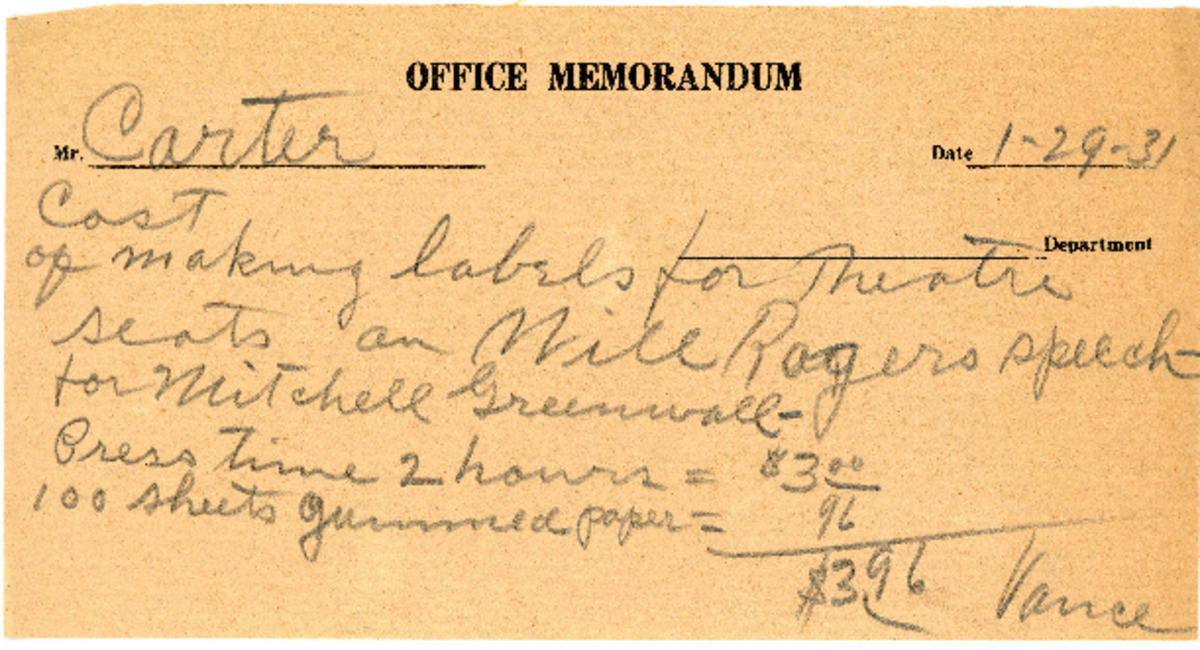 OFFICE MEMORANDUM
Mr. Carter Date 1-29-31
Department
Cost
of making labels for Theatre
seats on Will Rogers speech
for Mitchell Greenwall-
Press time 2 hours = $3.00
100 sheets gummed paper = 96
$3.96 Vance